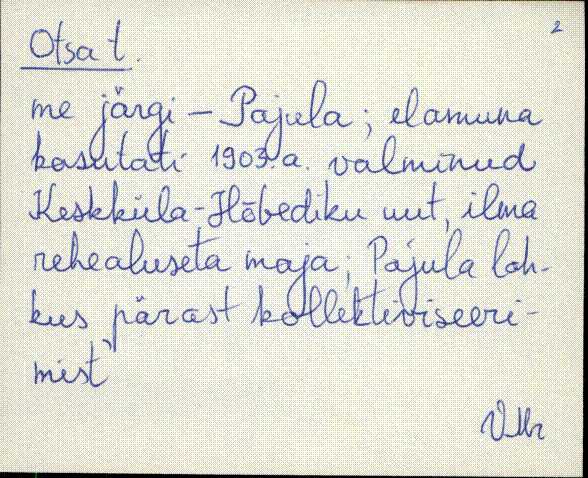 2
Otsa t.
me järgi – Pajula; elamuna
kasutati 1903.a. valminud
Keskküla-Hõbediku uut, ilma
rehealuseta maja; Pajula loh-
kus pärast kollektiviseeri-
mist
VMr